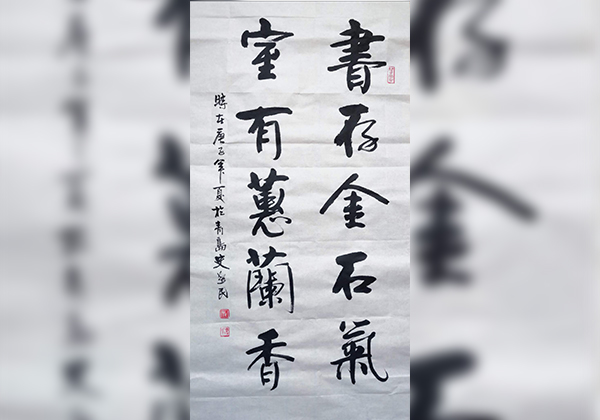 書存金石氣
室有蕙蘭香
時在庚子年夏於青島史
民